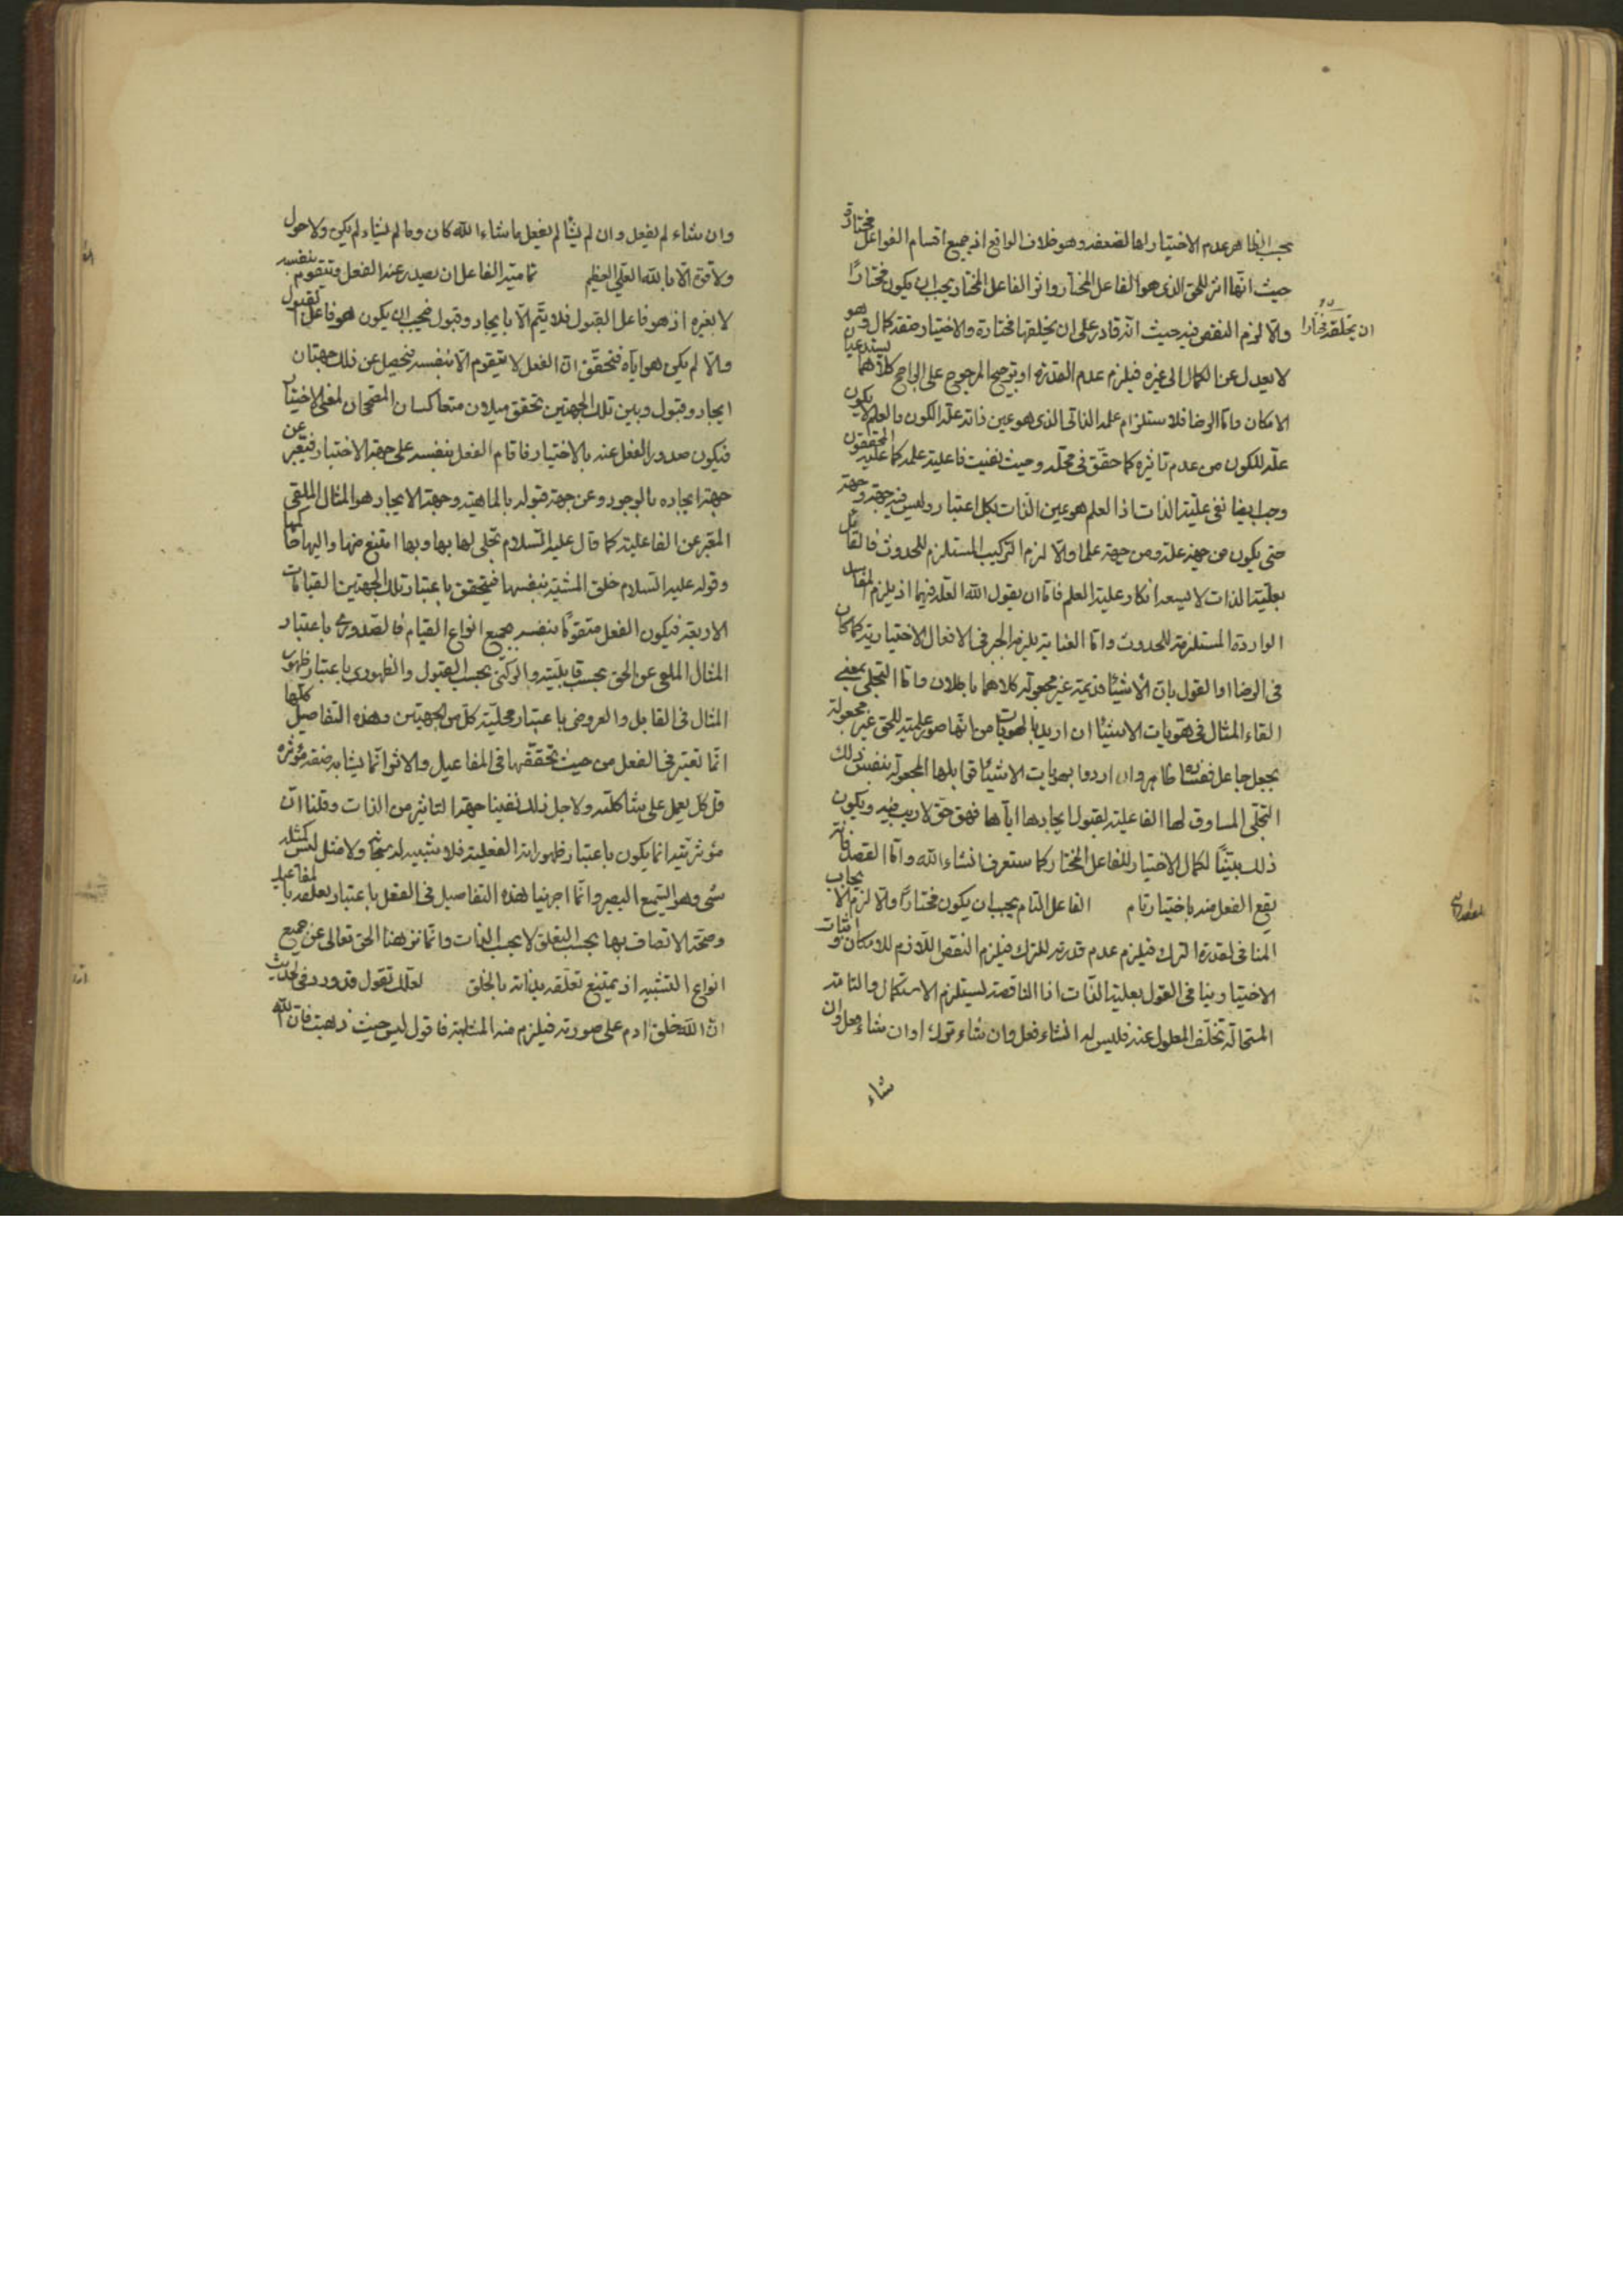 بحسب الظاهر عدم الاختيار لها لضعفه وهو خلاف الواقع اذ جميع اقسام الفواعل مختارة
حيث انها اثر للحق الذى هو الفاعل المختار واثر الفاعل المختار يجب ان يكون مختارًا
ان يخلقه مختارا
والّا لزم النقص فيه حيث انه قادر على ان يخلقها مختارة والاختيار صفة كمال وهو
لا يعدل عن الكمال الى غيره فيلزم عدم القدرة او ترجيح المرجوح على الراجح كلاهما يستدعيان
الامكان وامّا الرضا فلاستلزام علمه الذاتى الذى هو عين ذاته علّة الكون والعلم لا يكون
علّة للكون من عدم تاثيره كما حقّق فى محلّه وحيث نفيت فاعلية علمه كما عليه المحققون
وجب ايضا نفى علّية الذات اذ العلم هو عين الذات بكل اعتبار وليس فيه جهة وجهة
حتى يكون من جهة علة ومن جهة علما والّا لزم التركيب المستلزم للحدوث فالقائل
بعلّية الذات لا يسعه انكار علية العلم فامّا ان يقول الله العلة فيهما اذ يلزم المفاسد
الواردة المستلزمة للحدوث وامّا العناية يلزم الجبر فى الافعال الاختيارية كما كان
فى الرضا او القول بانّ الاشياء قديمة غير مجعولة كلاهما باطلان وامّا التجلى بمعنى
القاء المثال فى هويات الاشياء ان اريد بالهويات من انها صور علمية للحق غير مجعولة
بجعل جاعل ففساده ظاهر وان ارادوا بهويات الاشياء قوابلها المجعولة بنفس ذلك
التجلى المساوق لها الفاعلية لقبول ايجادها اياها فهو حق لا ريب فيه ويكون
ذلك بيتنًا لكمال الاختيار للفاعل المختار كما ستعرف انشاء الله وامّا القصد فانه
يقع الفعل منه باختيار تام الفاعل التام يجب ان يكون مختارًا والّا لزم الايجاب
المنافى لقدرة الترك فيلزم عدم قدرته للترك فيلزم النقص اللازم للامكان واثبات
الاختيار ينافى القول بعلية الذات اذ الناقصة يستلزم الاستكمال والتامة
المستحالة تخلّف المعلول عنه فليس له انشاء فعل وان شاء ترك او ان شاء فعل وان
شاء
وان شاء لم يفعل وان لم يشأ لم يفعل ما شاء الله كان وما لم يشاء لم يكن ولا حول
ولا قوة الّا بالله العلي العظيم تمامية الفاعل ان يصدر عنه الفعل ويتقوم بنفسه
لا بغيره اذ هو فاعل القبول فلا يتم الّا بايجاد وقبول فيجب ان يكون هو فاعل القبول
والّا لم يكن هو اياه فتحقّق انّ الفعل لا يتقوم الّا بنفسه فيحصل عن ذلك جهتان
ايجاد وقبول وبين تلك الجهتين تحقق ميلان متعاكسان المصححان لمعنى الاختيار
فيكون صدور الفعل عنه بالاختيار فاقام الفعل بنفسه على جهة الاختيار فيعبّر عن
جهة ايجاده بالوجود وعن جهة قبوله بالماهية وجهة الايجاد هو المثال الملقى
المعبّر عن الفاعلية كما قال عليه السلام تجلى لها بها وبها امتنع منها واليها حاكمها
وقوله عليه السلام خلق المشية بنفسها فيتحقق باعتبار تلك الجهتين القيامات
الاربعة فيكون الفعل متقومًا بنفسه بجميع انواع القيام فالصّدورى باعتبار
المثال الملقى عن الحق بحسب قابليته والركنى بحسب القبول والظهورى باعتبار ظهور
المثال فى القابل والعروضى باعتبار محليّة كلّ من الجهتين وهذه التفاصيل كلها
انّما تعتبر فى الفعل من حيث تحققها فى المفاعيل والاثر انّما يشابه صفة مؤثره
قل كل يعمل على شاكلته ولاجل ذلك نفينا جهة التاثير من الذات وقلنا انّ
مؤثريته انما يكون باعتبار ظهوراته الفعلية فلا شبيه له شيئا ولا مثل ليس كمثله
شى وهو السّميع البصير وانّما اجرينا هذه التفاصيل فى الفعل باعتبار تعلقه بالمفاعيل
وصحّة الاتصاف بها بحسب التعلّق لا بحسب الذات وانّما نزهنا الحق تعالى عن جميع
انواع التشبيه اذ يمتنع تعلّقه بذاته بالخلق لعلّك تقول قد ورد فى الحديث
انّ الله خلق ادم على صورته فيلزم منه المشابهة فاقول ليس حيث ذهبت فان لله